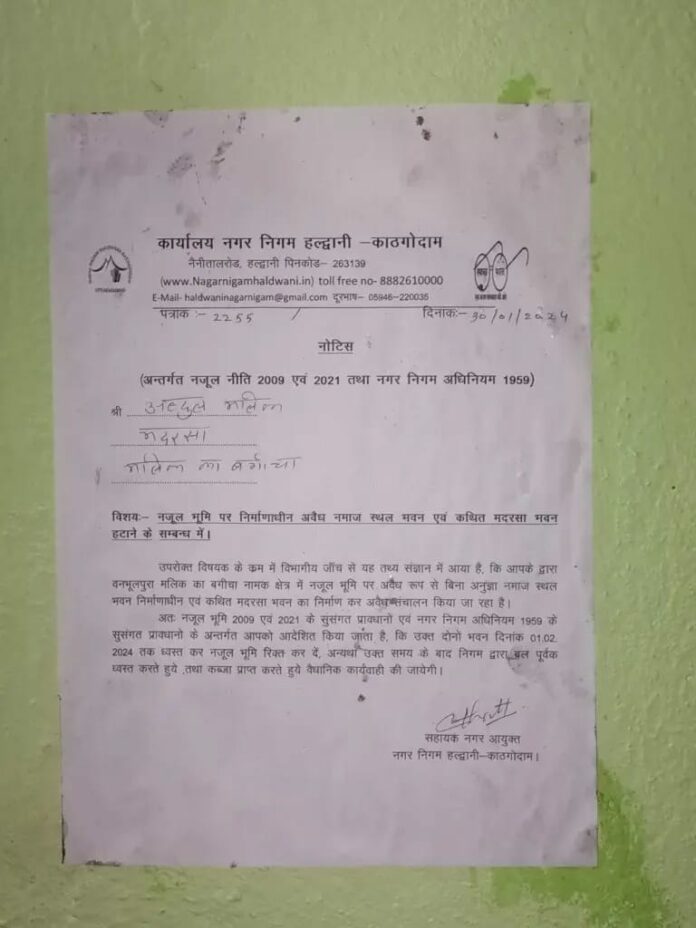 कार्यालय नगर निगम हल्द्वानी –काठगोदाम
नैनीतालरोड, हल्द्वानी पिनकोड– 263139
(www.Nagarnigamhaldwani.in) toll free no- 8882610000
E-Mail- haldwaninagarnigam@gmail.com दूरभाष– 05946–220035
पत्रांक :– 2255 /
दिनांकः– 30/01/2024
नोटिस
(अन्तर्गत नजूल नीति 2009 एवं 2021 तथा नगर निगम अधिनियम 1959)
श्री अब्दुल मलिक
मदरसा
मलिक का बगीचा
विशयः– नजूल भूमि पर निर्माणाधीन अवैध नमाज स्थल भवन एवं कथित मदरसा भवन
हटाने के सम्बन्ध में।
उपरोक्त विषयक के क्रम में विभागीय जाँच से यह तथ्य संज्ञान में आया है, कि आपके द्वारा
वनभूलपुरा मलिक का बगीचा नामक क्षेत्र में नजूल भूमि पर अवैध रूप से बिना अनुज्ञा नमाज स्थल
भवन निर्माणाधीन एवं कथित मदरसा भवन का निर्माण कर अवैध संचालन किया जा रहा है।
अतः नजूल भूमि 2009 एवं 2021 के सुसंगत प्रावधानो एवं नगर निगम अधिनियम 1959 के
सुसंगत प्रावधानो के अन्तर्गत आपको आदेशित किया जाता है, कि उक्त दोनो भवन दिनांक 01.02.
2024 तक ध्वस्त कर नजूल भूमि रिक्त कर दें, अन्यथा उक्त समय के बाद निगम द्वारा बल पूर्वक
ध्वस्त करते हुये तथा कब्जा प्राप्त करते हुये वैधानिक कार्यवाही की जायेगी।
सहायक नगर आयुक्त
नगर निगम हल्द्वानी–काठगोदाम।